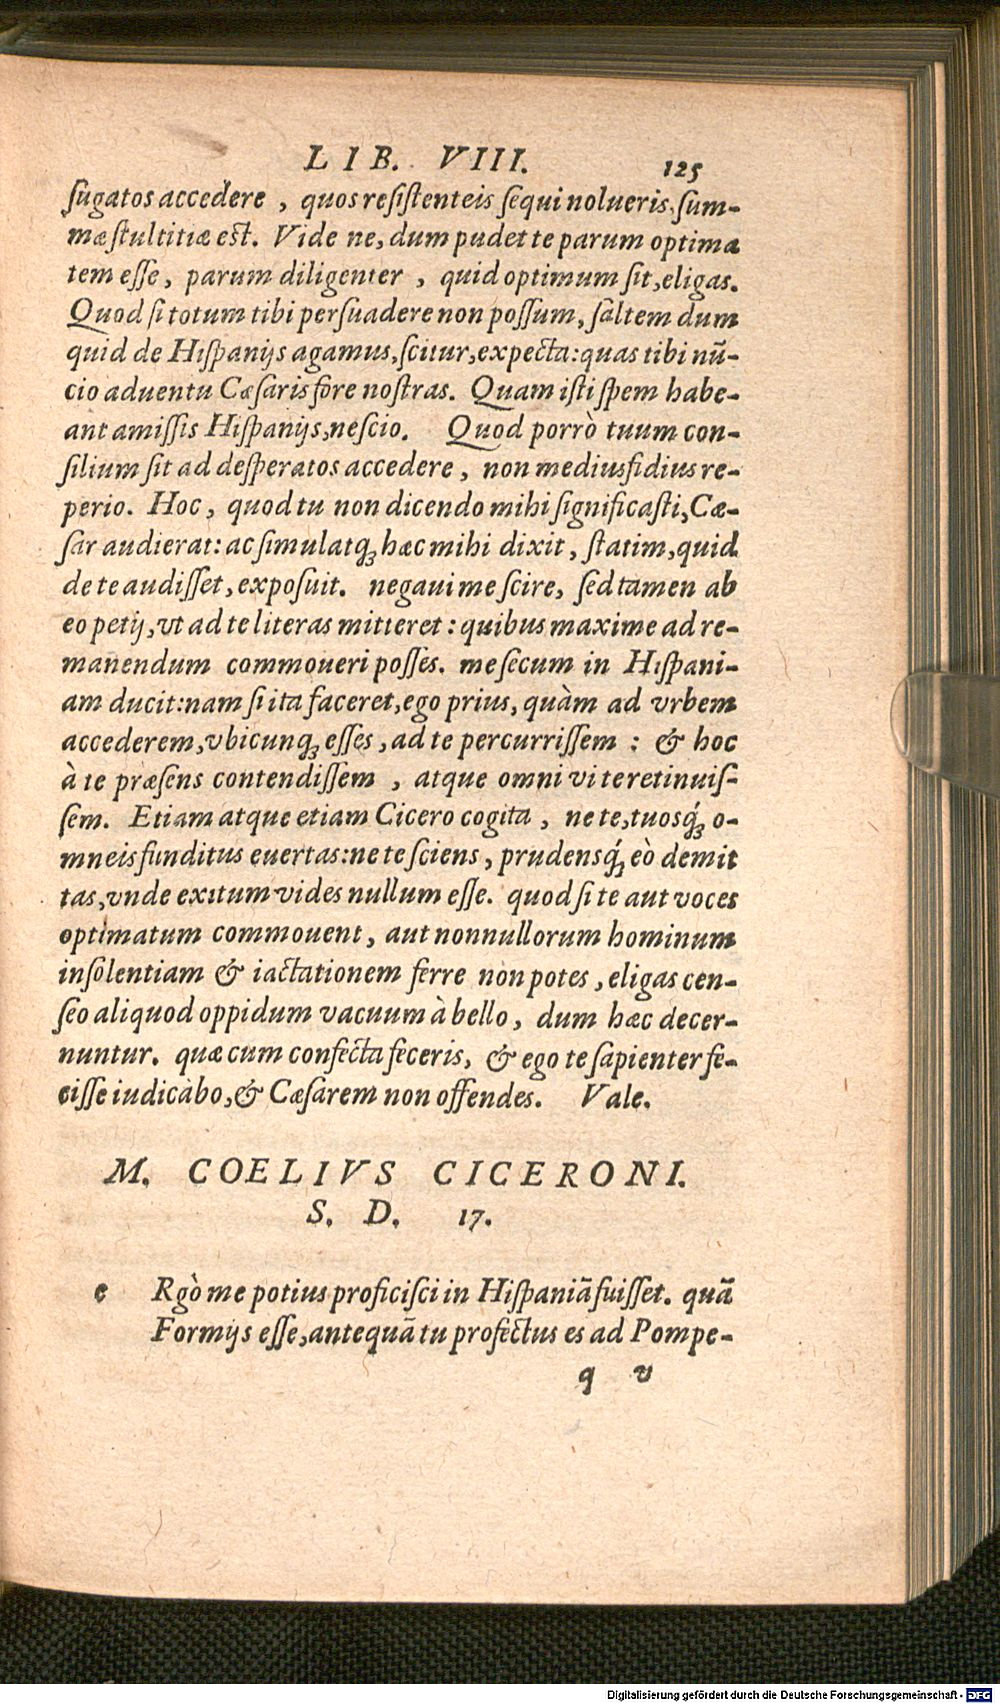 LIB. VIII. 125
fugatos accedere , quos resistenteis sequi nolueris, sum-
mæ stultitiæ est. Vide ne, dum pudet te parum optima
tem esse, parum diligenter , quid optimum sit, eligas.
Quod si totum tibi persuadere non possum, saltem dum
quid de Hispanijs agamus, scitur, expecta: quas tibi nũ-
cio aduentu Cæsaris fore nostras. Quam isti spem habe-
ant amissis Hispanijs, nescio. Quod porrò tuum con-
silium sit ad desperatos accedere, non mediusfidius re-
perio. Hoc, quod tu non dicendo mihi significasti, Cæ-
sar audierat: ac simulatqꝫ hæc mihi dixit, statim, quid
de te audisset, exposuit. negaui me scire, sed tamen ab
eo petij, vt ad te literas mitteret: quibus maxime ad re-
manendum commoueri posses. me secum in Hispani-
am ducit: nam si ita faceret, ego prius, quàm ad vrbem
accederem, vbicunqꝫ esses, ad te percurrissem: & hoc
à te præsens contendissem , atque omni vi te retinuis-
sem. Etiam atque etiam Cicero cogita, ne te, tuosq́ꝫ o-
mneis funditus euertas: ne te sciens, prudensq́ꝫ eò demit
tas, vnde exitum vides nullum esse. quod si te aut voces
optimatum commouent, aut nonnullorum hominum
insolentiam & iactationem ferre non potes, eligas cen-
seo aliquod oppidum vacuum à bello, dum hæc decer-
nuntur. quæ cum confecta feceris, & ego te sapienter fe-
cisse iudicabo, & Cæsarem non offendes. Vale.
M. COELIVS CICERONI.
S. D. 17.
e Rgò me potius proficisci in Hispaniã fuisset. quã
Formijs esse, antequã tu profectus es ad Pompe-
q v
Digitalisierung gefördert durch die Deutsche Forschungsgemeinschaft - DFG